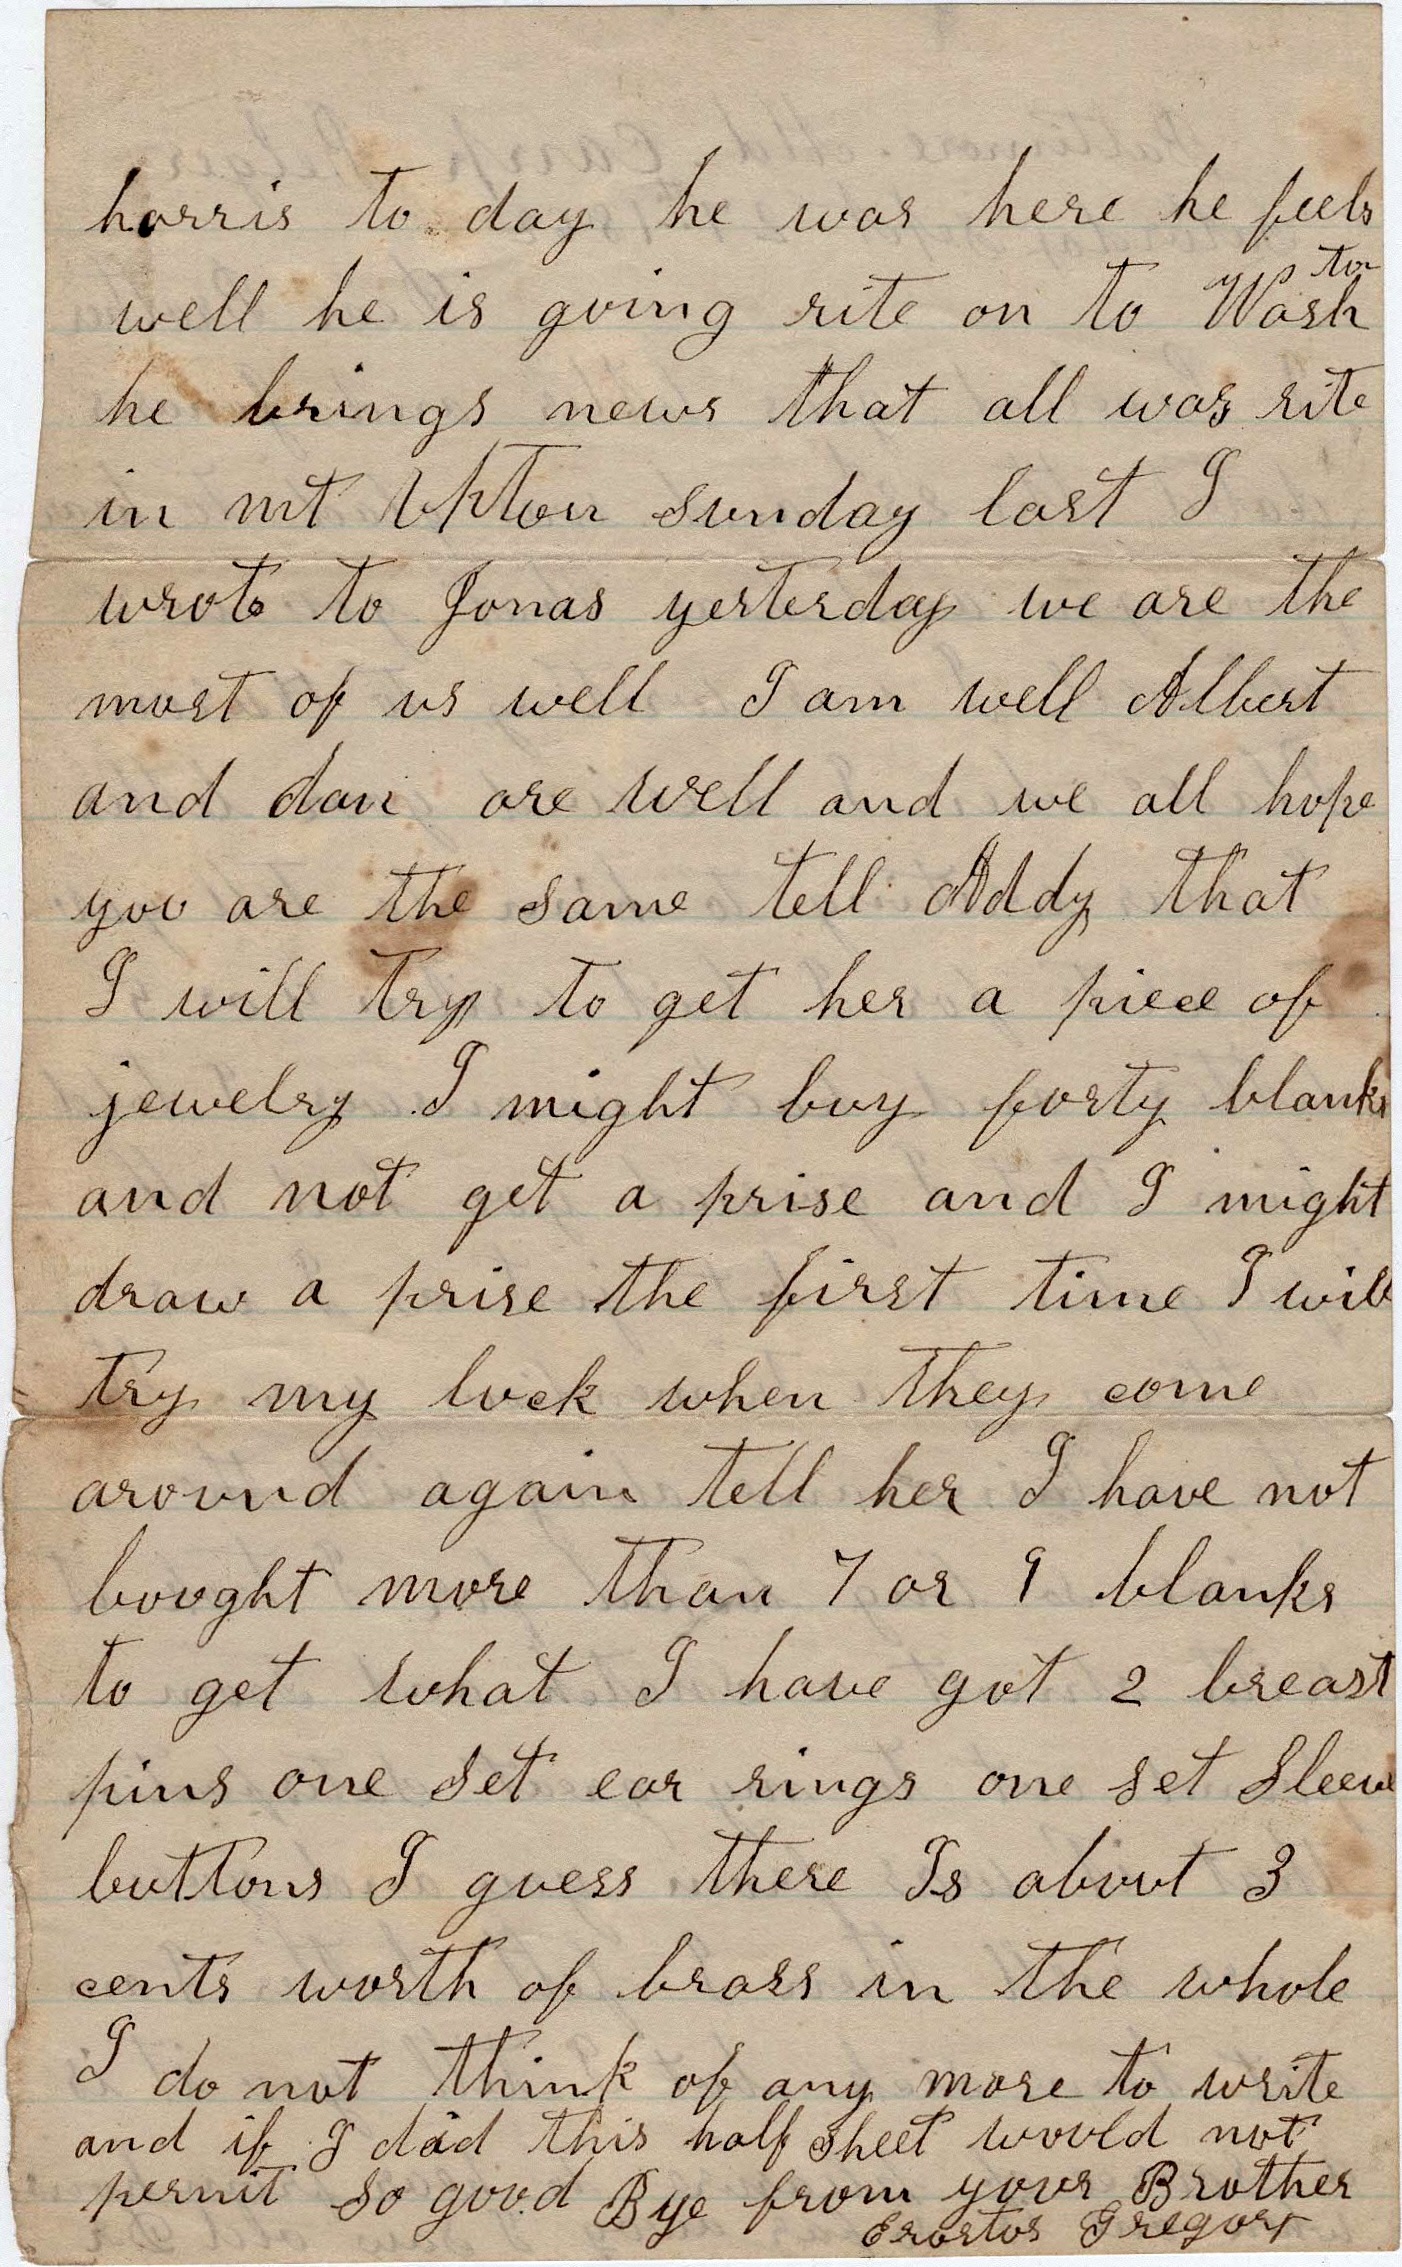 harris to day he was here he feels
well he is going rite on to Wash ton
he brings news that all was rite
in mt Upton sunday last I
wrote to Jonas yesterday we are the
most of us well I am well Albert
and dan are well and we all hope
you are the same tell Addy that
I will try to get her a piece of
jewelry I might buy forty blanks
and not get a prise and I might
draw a prise the first time I will
try my luck when they come
around again tell her I have not
bought more than 7 or 9 blanks
to get what I have got 2 breast
pins one set ear rings one set sleeve
buttons I guess there Is about 3
cents worth of brass in the whole
I do not think of any more to write
and if I did this half sheet would not
permit so good Bye from your Brother
Erastus Gregory